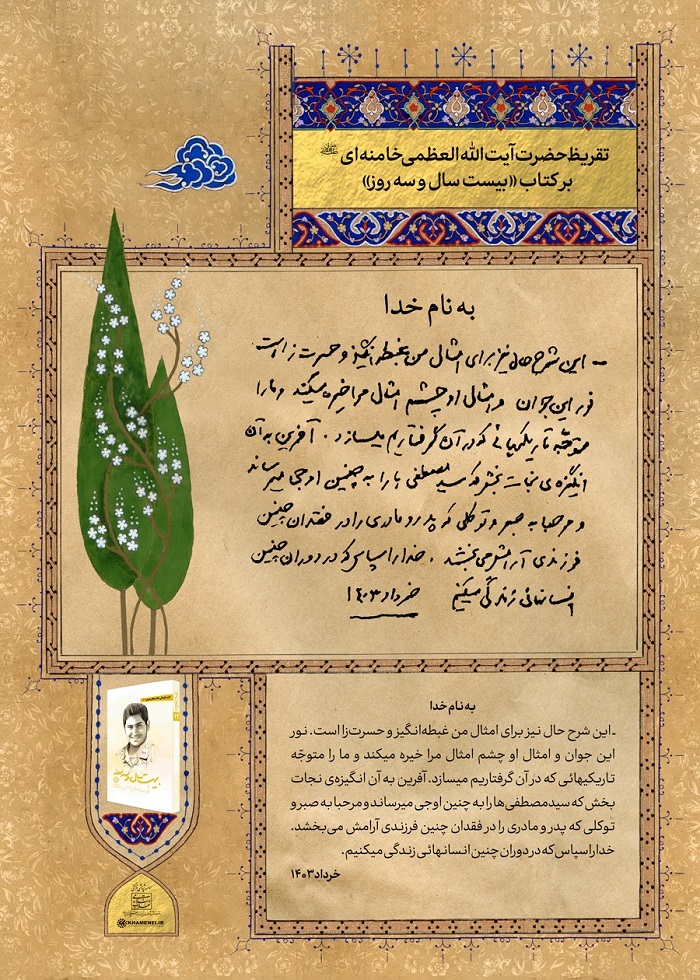 تقریظ حضرت آیت الله العظمی خامنه ای
بر کتاب «بیست سال و سه روز»
به نام خدا
- این شرح حال نیز برای امثال من غبطه انگیز و حسرت زا است.
نور این جوان و امثال او چشم امثال مرا خیره میکند و ما را
متوجّه تاریکیهائی که در آن گرفتاریم میسازد. آفرین به آن
انگیزه‌ی نجات بخش که سید مصطفی ها را به چنین اوجی میرساند
و مرحبا به صبر و توکلی که پدر و مادری را در فقدان چنین
فرزندی آرامش می بخشد. خدا را سپاس که در دوران چنین
انسانهائی زندگی میکنیم خرداد ۱۴۰۳
به نام خدا
ـ این شرح حال نیز برای امثال من غبطه انگیز و حسرت زا است. نور
این جوان و امثال او چشم امثال مرا خیره میکند و ما را متوجّه
تاریکیهائی که در آن گرفتاریم میسازد. آفرین به آن انگیزه‌ی نجات
بخش که سید مصطفی ها را به چنین اوجی میرساند و مرحبا به صبر و
توکلی که پدر و مادری را در فقدان چنین فرزندی آرامش می بخشد.
خدا را سپاس که در دوران چنین انسانهائی زندگی میکنیم.
خرداد ۱۴۰۳
KHAMENEI.IR